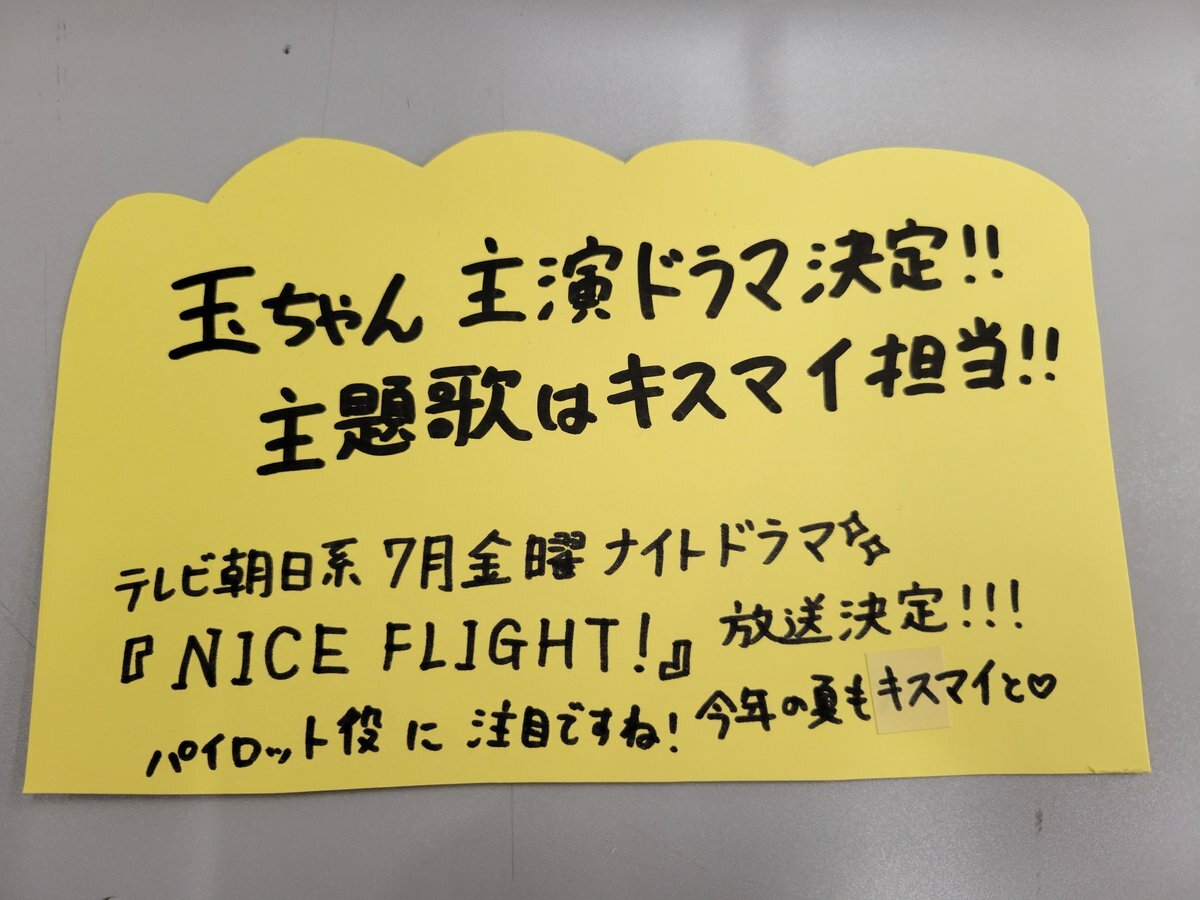 玉ちゃん 主演ドラマ決定!!
主題歌はキスマイ担当!!
テレビ朝日系 7月金曜ナイトドラマ✨
『NICE FLIGHT!』放送決定!!!
パイロット役に注目ですね! 今年の夏もキスマイと♡